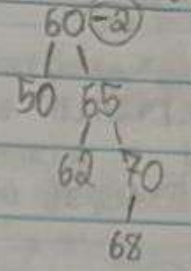 60 -2
50 65
62 70
68